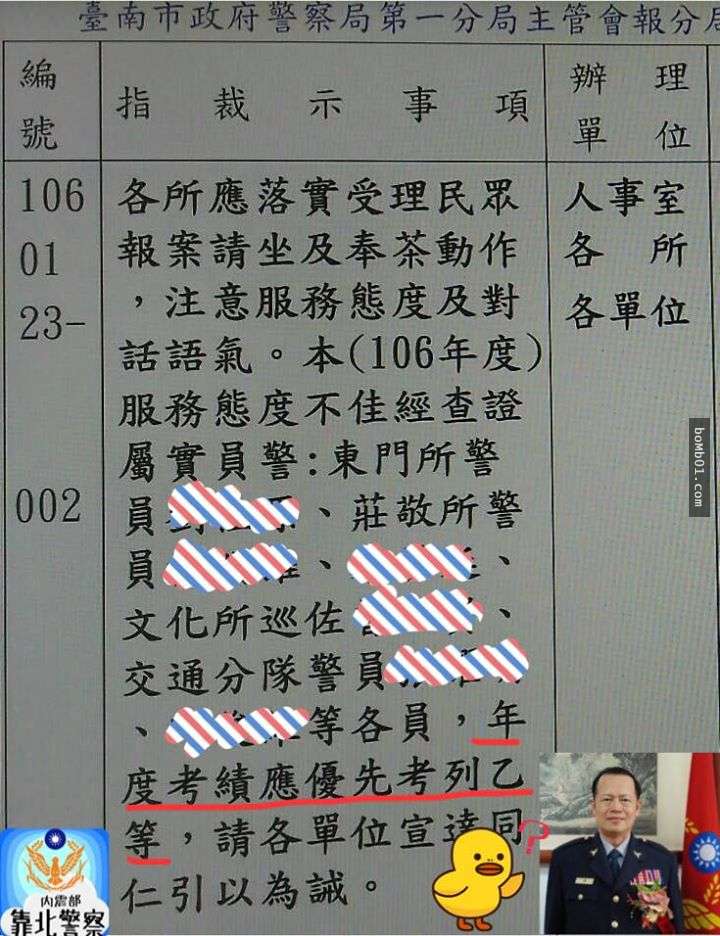 臺南市政府警察局第一分局主管會報分局
編號
指裁示事項
辦理單位
106
01
23-
002
各所應落實受理民眾
報案請坐及奉茶動作
，注意服務態度及對
話語氣。本(106年度)
服務態度不佳經查證
屬實員警:東門所警
員、莊敬所警
員、、
文化所巡佐、
交通分隊警員
、等各員，年
度考績應優先考列乙
等，請各單位宣達同
仁引以為誡。
人事室
各所
各單位
boMb01.com
?
內震部
靠北警察